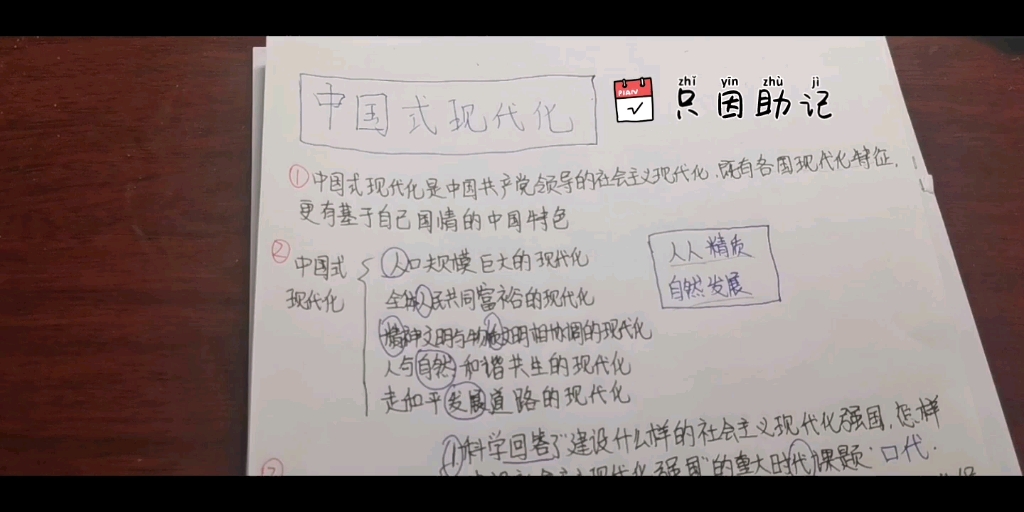 中国式现代化
PIAN
zhī yīn zhù jì
只因助记
①中国式现代化是中国共产党领导的社会主义现代化,既有各国现代化特征,
更有基于自己国情的中国特色
②中国式现代化
人口规模巨大的现代化
全体人民共同富裕的现代化
精神文明与物质文明相协调的现代化
人与自然和谐共生的现代化
走和平发展道路的现代化
人人精质
自然发展
①科学回答了"建设什么样的社会主义现代化强国,怎样
社会主义现代化强国"的重大时代课题"口代"